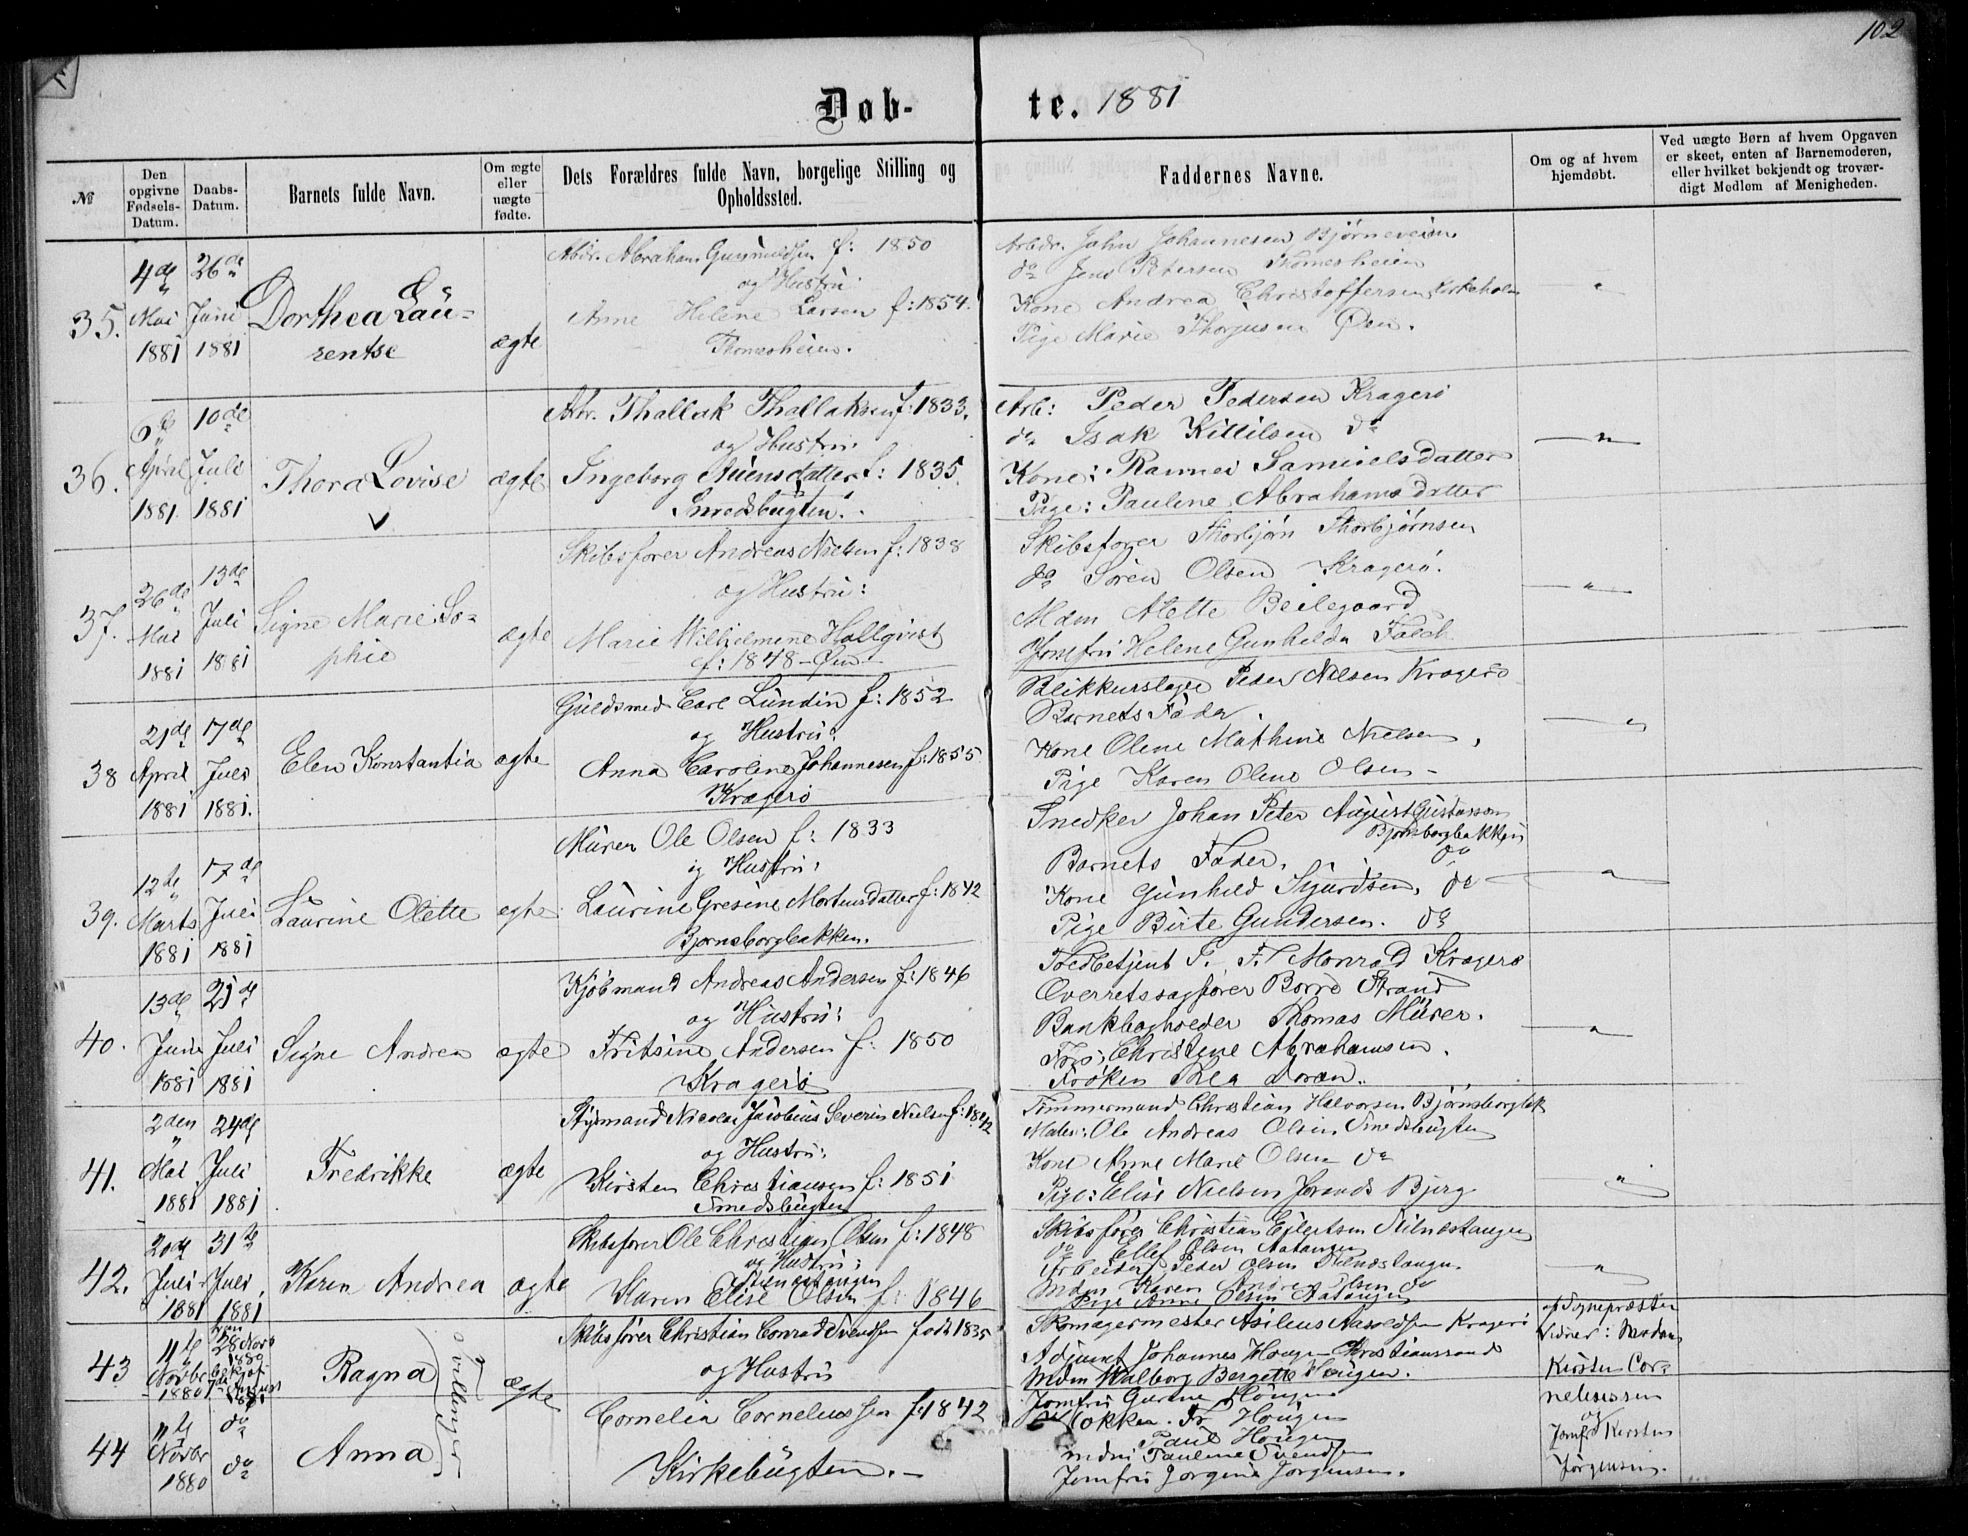 102
Døb-
te. 1881
№
Den opgivne Fødsels-Datum.
Daabs-Datum.
Barnets fulde Navn.
Om ægte eller uægte fødte.
Dets Forældres fulde Navn, borgelige Stilling og Opholdssted.
Faddernes Navne.
Om og af hvem hjemdøbt.
Ved uægte Børn af hvem Opgaven er skeet, enten af Barnemoderen, eller hvilket bekjendt og troværdigt Medlem af Menigheden.
35.
4de Mai 1881
26de Juni 1881
Dorthea Lau=
rentse
ægte
Abdr. Abraham Gunnuldsen f: 1850
og Hustru
Anne Helene Larsen f: 1854.
Thomesheien.
Arbdr. John Johannesen Bjørneveien
do Jens Petersen Thomesheien
Kone Andrea Christoffersen Kirkeholm
Pige Marie Thorjusen Øen.
36.
6te April 1881.
10de Juli 1881
Thora Lovise
ægte
Abr. Thallak Thallaksen f: 1833.
og Hustru
Ingeborg Auensdatter f: 1835.
Smedsbugten.
Arb: Peder Pedersen Kragerö
do Isak Kittilsen do
Kone: Ramnei Samuelsdatter
Pige: Pauline Abrahamsdatter
37.
26de Mai 1881
13de Juli 1881
Signe Marie So=
phie
ægte
Skibsfører Andreas Nielsen f: 1838
og Hustru:
Marie Wilhelmene Hallqvist
f: 1848 - Øen
Skibsfører Thorbjøn Thorbjørnsen
do Sören Olsen Kragerö.
Mdm Alette Beilegaard
Jomfru Helene Gunhilda Falch
38
21de April 1881
17de Juli 1881.
Elen Konstantia
ægte
Guldsmed Carl Lundin f: 1852
og Hustru:
Anna Caroline Johannesen f: 1855
Kragerö
Blikkenslager Peder Nilsen Kragerö
Barnets Fader.
Kone Olene Mathine Nielsen,
Pige Karen Oline Olsen -
39.
12te Marts 1881
17de Juli 1881
Laurine Olette
ægte
Murer Ole Olsen f: 1833
og Hustru:
Laurine Gresine Mortensdatter f: 1842
Bjornsborgbakken.
Snedker Johan Peter August Gustavsson
Bjornsborgbakken
Barnets Fader. do
Kone Gunhild Sjurdsen, do
Pige Birte Gundersen. do
40.
13de Juni 1881
21de Juli 1881
Signe Andrea
ægte
Kjöbmand Andreas Andersen f: 1846
og Hustru:
Fritsine Andersen f: 1850
Kragerö
Toldbetjent P. F. Monrad Kragerö
Overretssagfører Borre Strand
Bankbogholder Thomas Mürer.
Fru: Christine Abrahamsen.
Frøken Thea Loran.
41.
2den Mai 1881
24de Juli 1881
Fredrikke
ægte
Styrmand Nicolai Jacobius Severin Nielsen f: 1842
og Hustru:
Kirsten Christiansen f: 1851
Smedsbugten
Timmermand Christian Halvorsen Bjørnsborgbak
Mater: Ole Andreas Olsen Smedsbugten
Kone Anne Marie Olsen do
Pige: Elise Nielsen Jorands Bjerg
42.
20de Juli 1881
31te Juli, 1881
Karen Andrea
ægte
Skibsfører Ole Christian Olsen f: 1848
og Hustru:
Stilnestangen
Karen Elise Olsen f: 1846
Skibsfører Christian Ejlertsen Stilnestangen
do Ellef Olsen Aatangen
Arbeider Peder Olsen Stilnestangen
Mdm Karen Andrea Olsen do
Pige Anne Olsen Aatangen
43
11te Novbr 1880
28 Novb 1880
1881
Ragna
tvillinger
ægte
Skibsfører Christian Conrad Svendsen født 1835
og Hustru
Cornelia Corneliussen f: 1842
Kirkebugten. -
Skomagermester Asileus Aasoldsen Kragerö
Adjunct Johannes Hougen Christianssand
Mdm Walborg Bergette Hougen.
Jomfru Gurine Hougen
af Sognepræsten
Vidner: Madam
Kirsten Cor=
neliussen
og
Jomf. Kirsten
Jörgensen.
44
11te Novbr 1880
do
do
Anna
Klokker. Fr Hougen
Paul Hougen
mdm Pauline Svendsen
Jomfru Jorgine Jorgensen.